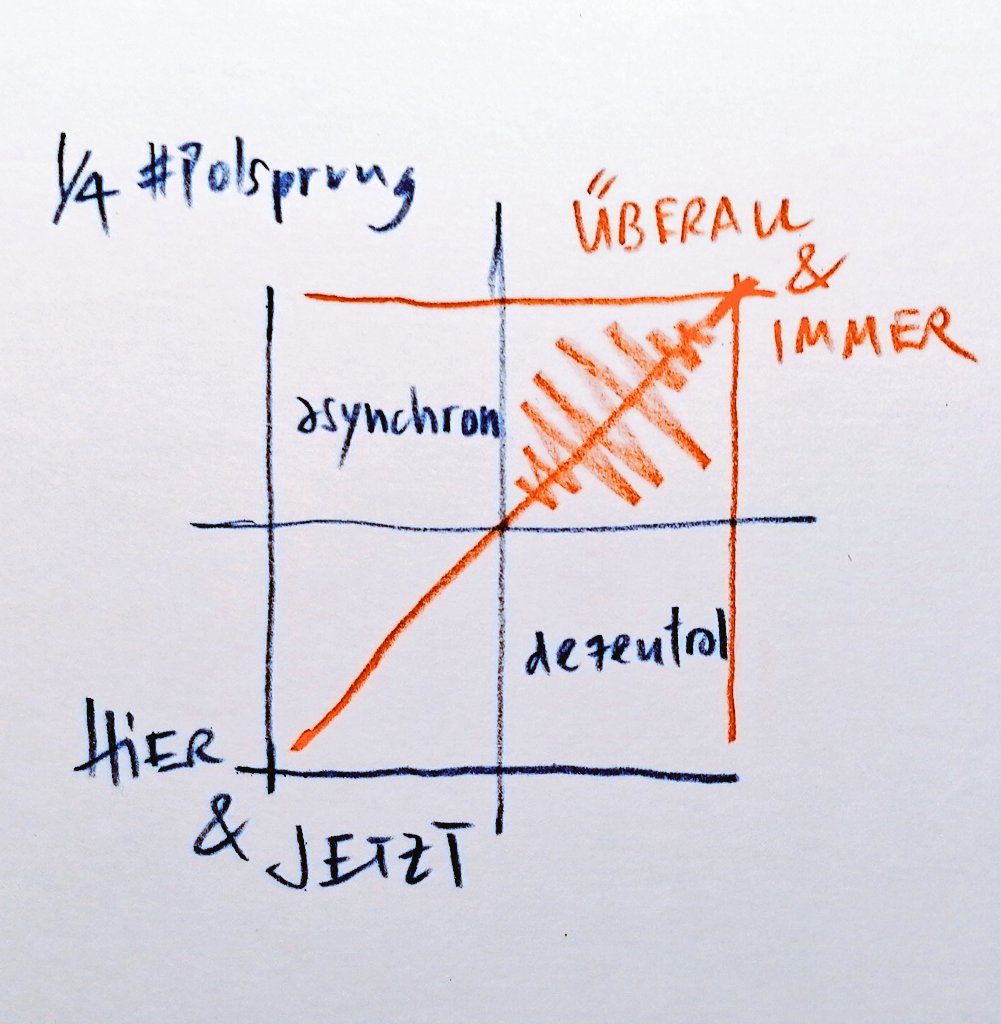 1/4 #Polsprung
ÜBERALL
&
IMMER
asynchron
dezentral
HiER
& JETZT